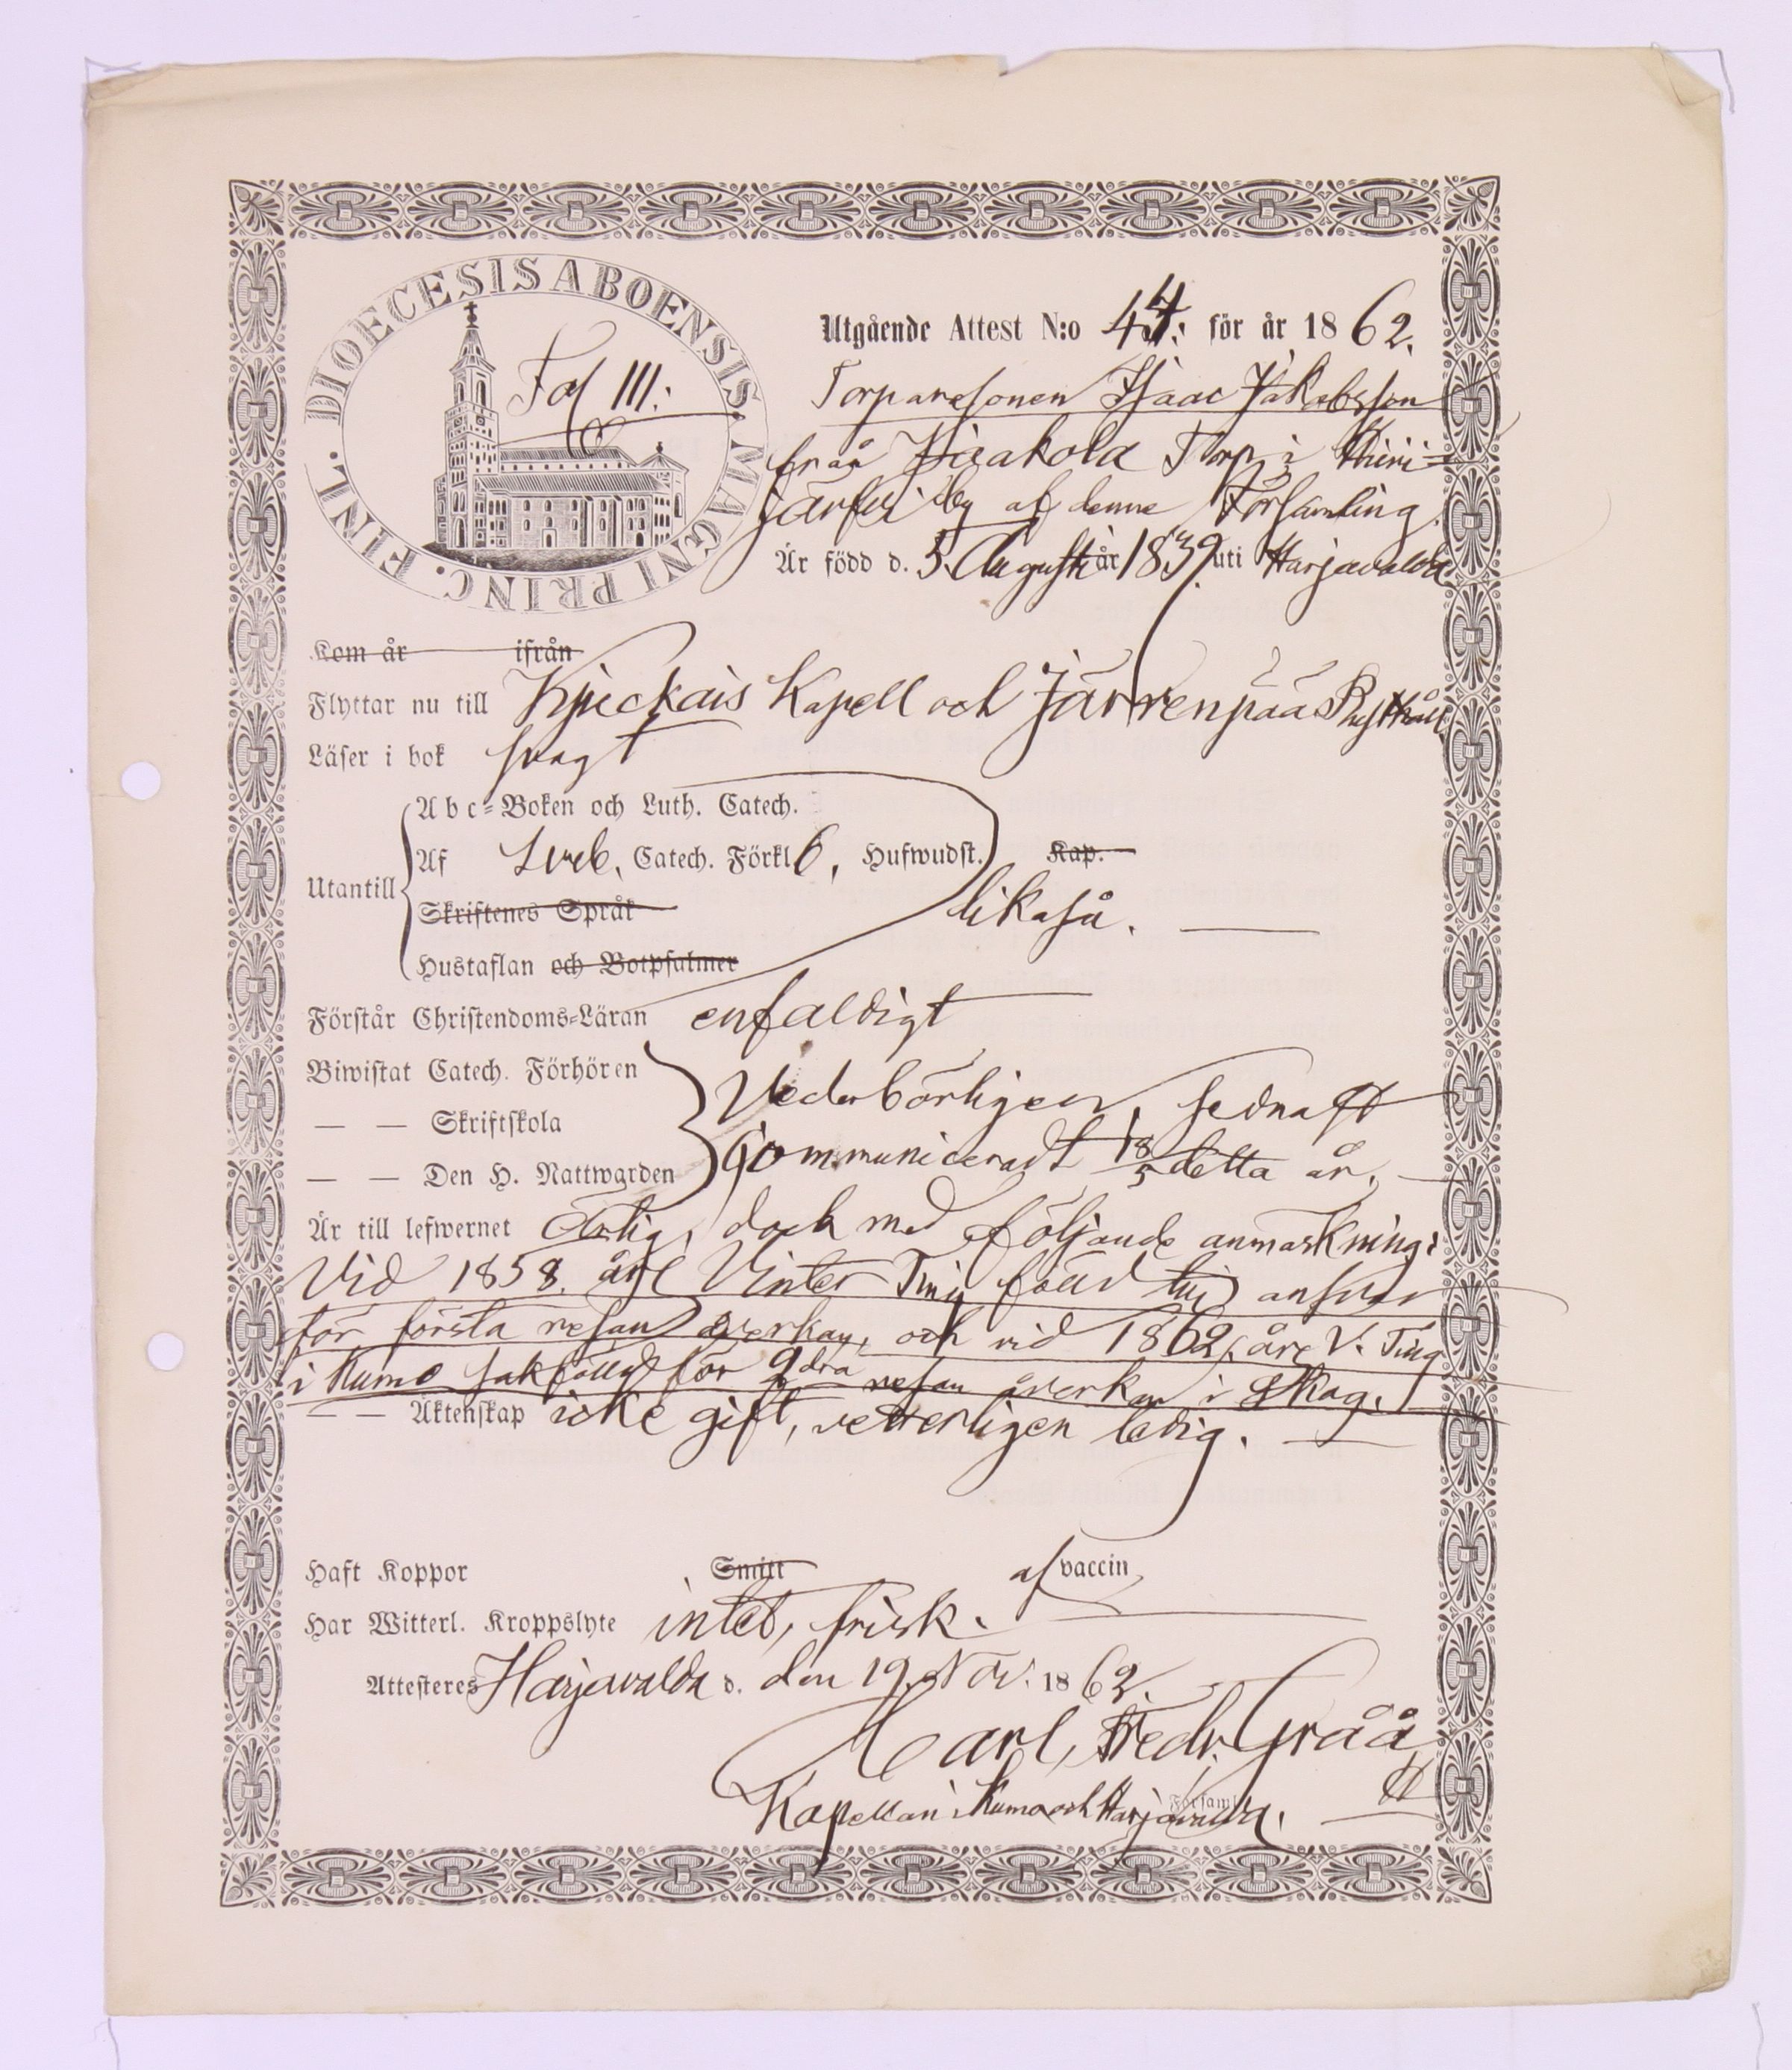 DIOECESIS ABOENSIS MAGNI PRINC. FINL.
Fol III:
Utgående Attest N:o 44. för år 1862.
Torparesonen Isaac Jakobsson
från Torp i Hiiri=
järfvi by af denne Församling.
Är född d. 5. Augusti år 1839 uti Harjavalda
Kom år ifrån
Flyttar nu till Kjuckais Kapell och Järvenpää Rusthåll
Läser i bok svagt
Utantill
Abc=Boken och Luth. Catech.
Af Sveb. Catech. Förkl 6, Hufwudst. Kap.
Skriftenes Språk likaså.
Hustaflan och Botpsalmer
Förstår Christendoms=Läran enfaldigt
Biwistat Catech. Förhören
— — Skriftskola
— — Den H. Nattwarden
Vederbörligen, sednast
Communicerat 18/5 detta år.
Är till lefwernet Ärlig, dock med följande anmärkning:
Vid 1858. års Vinter Ting fälld till ansvar
för första resan åverkan, och vid 1862 års V. Ting
i Kumo sakfälld för 2dra resan åverkan i Skog.
— — Äktenskap icke gift, vetterligen ledig.
Haft Koppor Snitt af vaccin
Har Witterl. Kroppslyte intet, frisk.
Attesteres Harjavalda d. den 19 Nov. 1862.
Carl Fredr. Gråå
Kapellan i Kumo och Harjavalda.
Församl